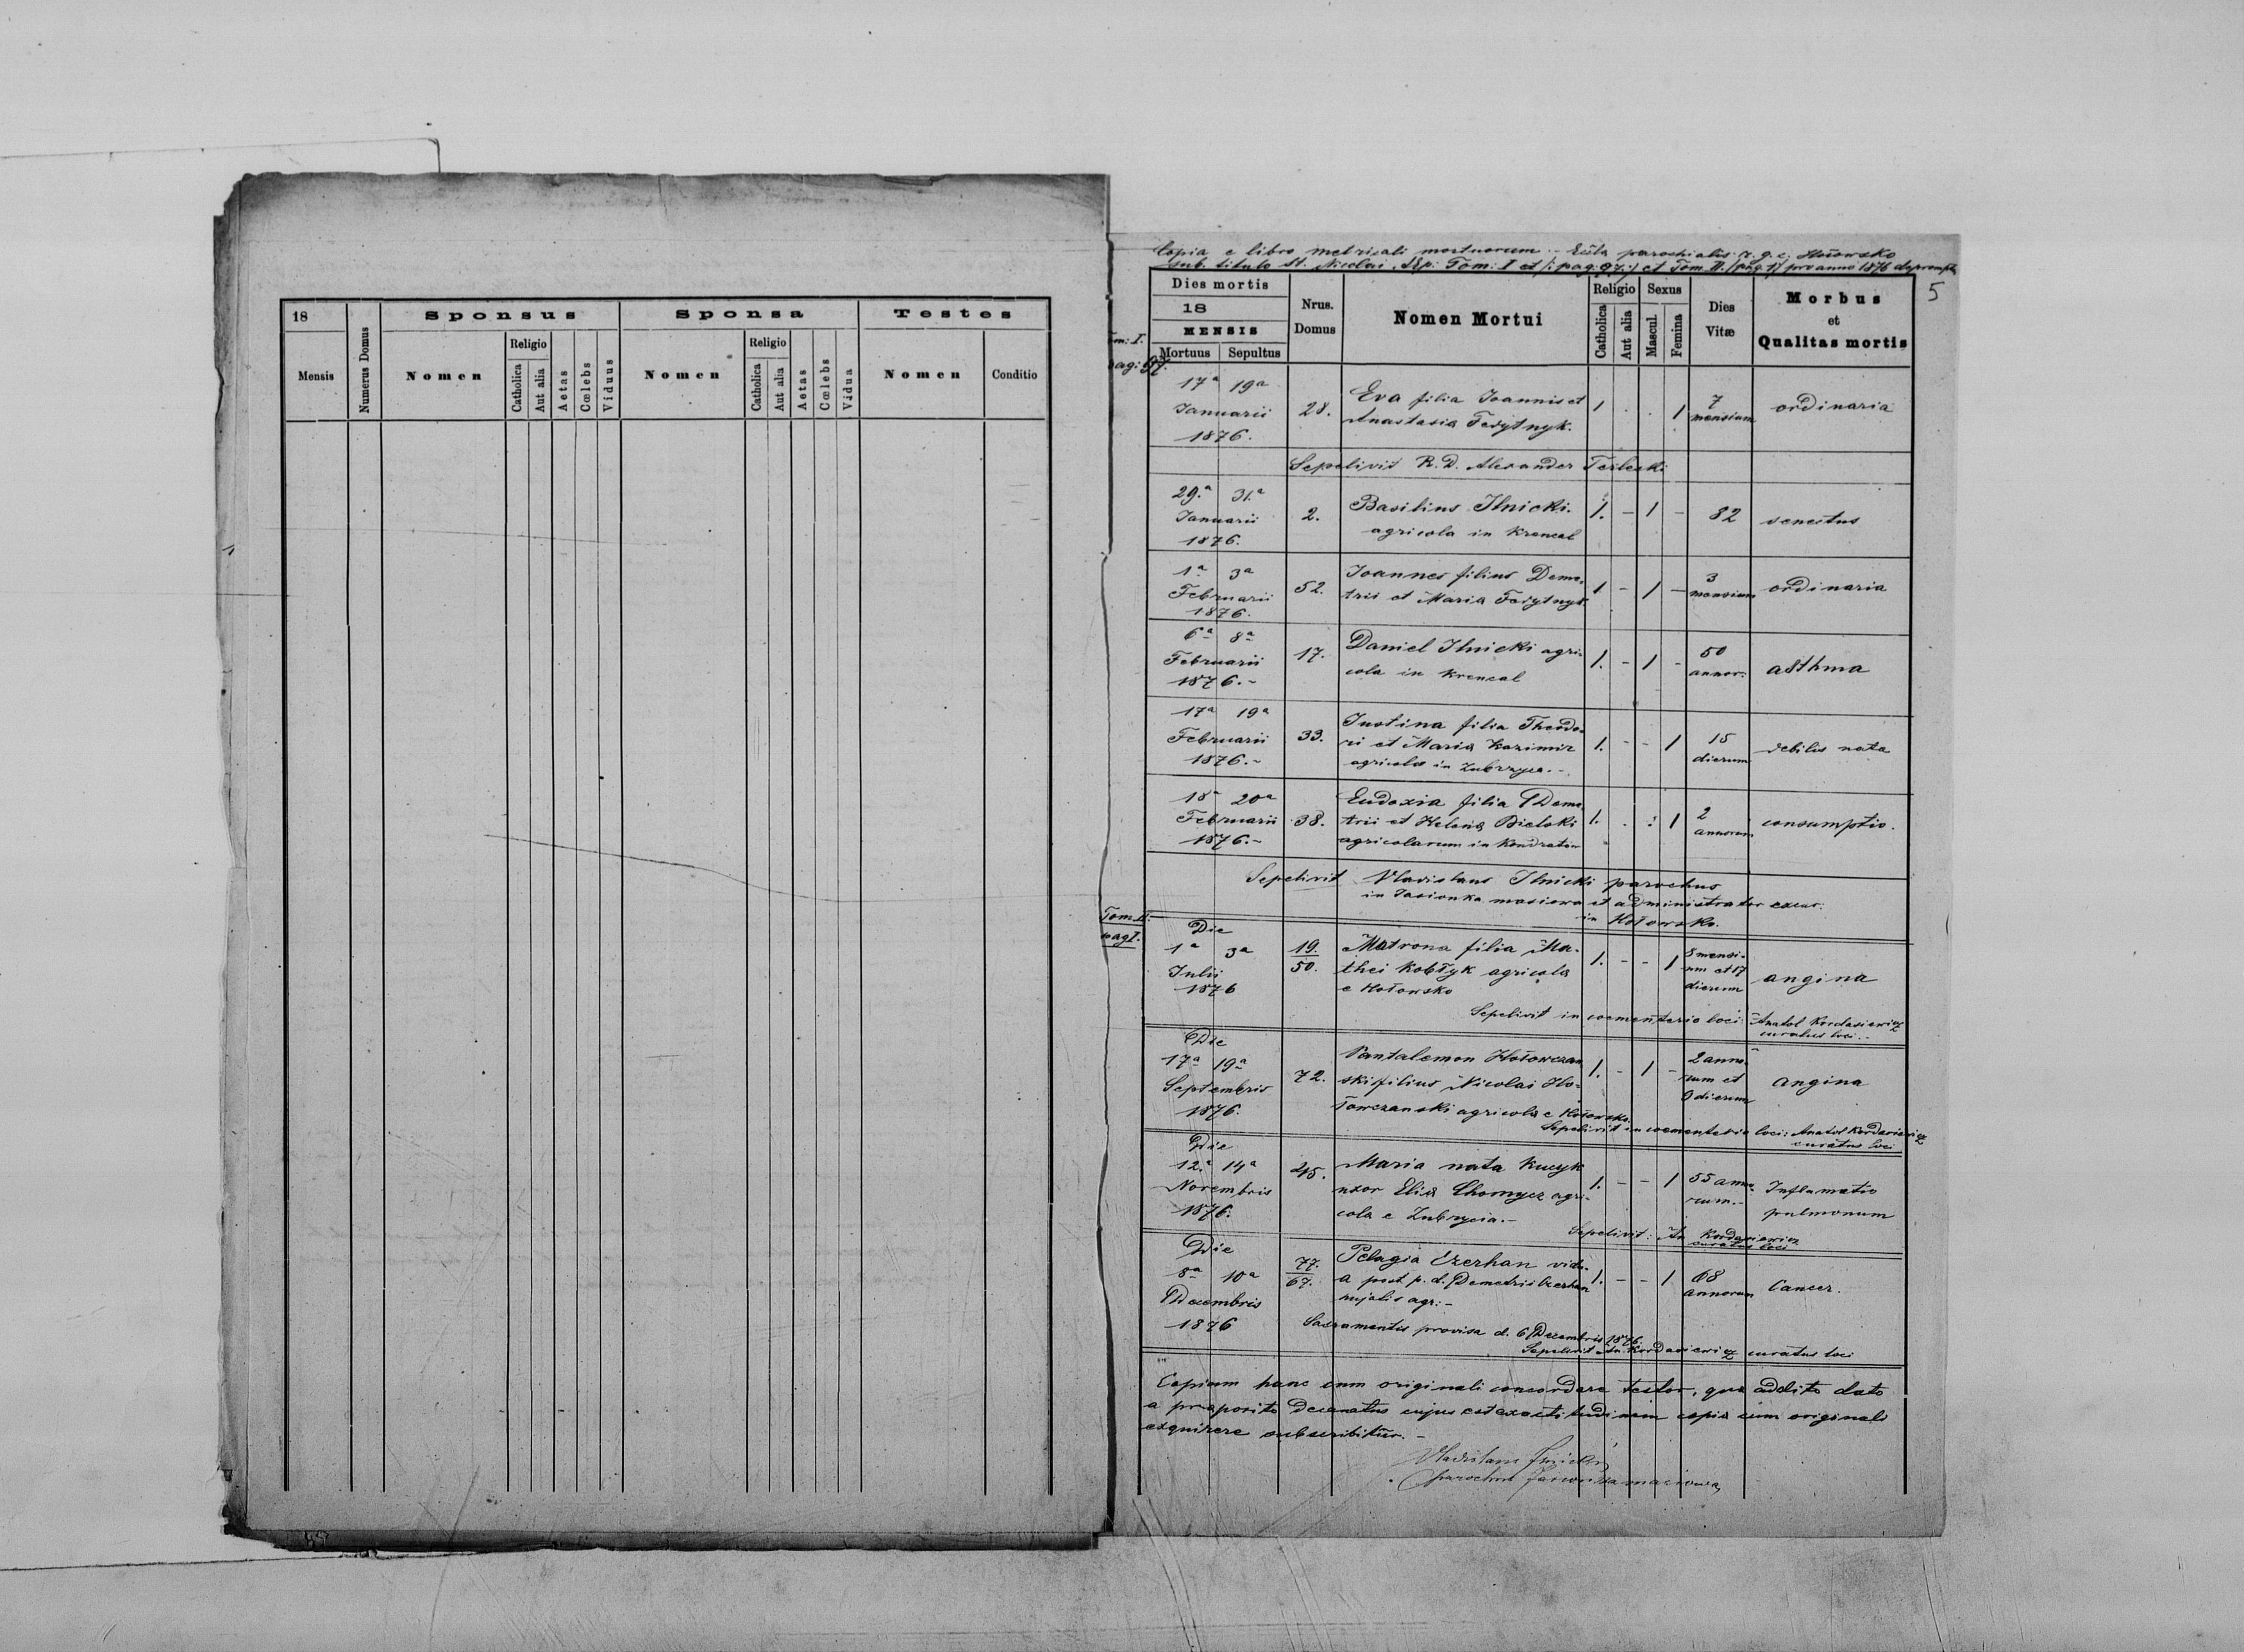 18
Mensis
Numerus Domus
Sponsus
Nomen
Religio
Catholica
Aut alia
Aetas
Cœlebs
Viduus
Sponsa
Nomen
Religio
Catholica
Aut alia
Aetas
Cœlebs
Vidua
Testes
Nomen
Conditio
Copia e libro metricali mortuorum Eccla parochialis r. g. c. Hołowsko
sub titulo St. Nicolai, Tom: I et /: pag. 97:/ et Tom II. /pag. 1/ pro anno 1876 deprompta
5
Dies mortis
18
MENSIS
Mortuus Sepultus
Nrus.
Domus
Nomen Mortui
Religio
Catholica
Aut alia
Sexus
Mascul.
Femina
Dies
Vitæ
Morbus
et
Qualitas mortis
Tom: I.
pag: 97.
17a 19a
Januarii
1876.
28.
Eva filia Joannis et
Anastasia Fedytnyk.
1 . . 1
7
mensium
ordinaria
Sepelivit R. D. Alexander Terlecki
29.a 31.a
Januarii
1876.
2.
Basilius Ilnicki.
agricola in Krencal
1. - 1 -
82
senectus
1a 3a
Februarii
1876.
52.
Joannes filius Deme-
trii et Maria Fedytnyk
1 - 1 -
3
mensium
ordinaria
6a 8a
Februarii
1876.-
17.
Daniel Ilnicki agri-
cola in Krencal
1. - 1 -
50
annor:
asthma
17a 19a
Februarii
1876.-
33.
Justina filia Theodo-
ri et Maria Kazimir
agricola in Zubrzyca.-
1. - - 1
15
dierum
debilis nata
18a 20a
Februarii
1876.-
38.
Eudoxia filia Deme
trii et Helena Bielski
agricolarum in Kondratów
1. . : 1
2
annorum
consumptio.
Sepelivit Vladislaus Ilnicki parochus
in Jasionka masiowa et administrator excur:
in Hołowsko.
Tom II.
pag 1.
Die
1a 3a
Julii
1876
19.
50.
Matrona filia Ma-
thei Kobłyk agricola
e Hołowsko
1. - - 1
8 mensi-
um et 17
dierum
angina
Sepelivit in coementerio loci: Anatol Kordasiewicz
curatus loci.-
Die
17a 19a
Septembris
1876.
72.
Pantalemon Hołowczan
ski filius Nicolai Ho-
łowczanski agricola e Hołowsko.
1. - 1 -
2 anno-
rum et
9 dierum
angina
Sepelivit in coementerio loci: Anatol Kordasiewicz
curatus loci
Die
12.a 14a
Novembris
1876.
45.
Maria nata Kucyk
uxor Elia Chomycz agri-
cola e Zubrzycia.-
1. - - 1
55 anno-
rum.-
Inflamatio
pulmonum
Sepelivit: An Kordasiewicz
curatus loci
Die
8a 10a
Decembris
1876
77.
67.
Pelagia Ezerhan vidu-
a post p. d. Demetrii Ezerhan
hujatis agr:-
1. - - 1
68
annorum
Cancer.
Sacramentis provisa d. 6 Decembris 1876.
Sepelivit An Kordasiewicz curatus loci
Copiam hanc cum originali concordare testor, qua addito dato
a praposito Decanatus cujus est exactitudinem copia cum originali
exquirere subscribitur.-
Vladislaus Ilnicki
parochus Jasionkamasiowa